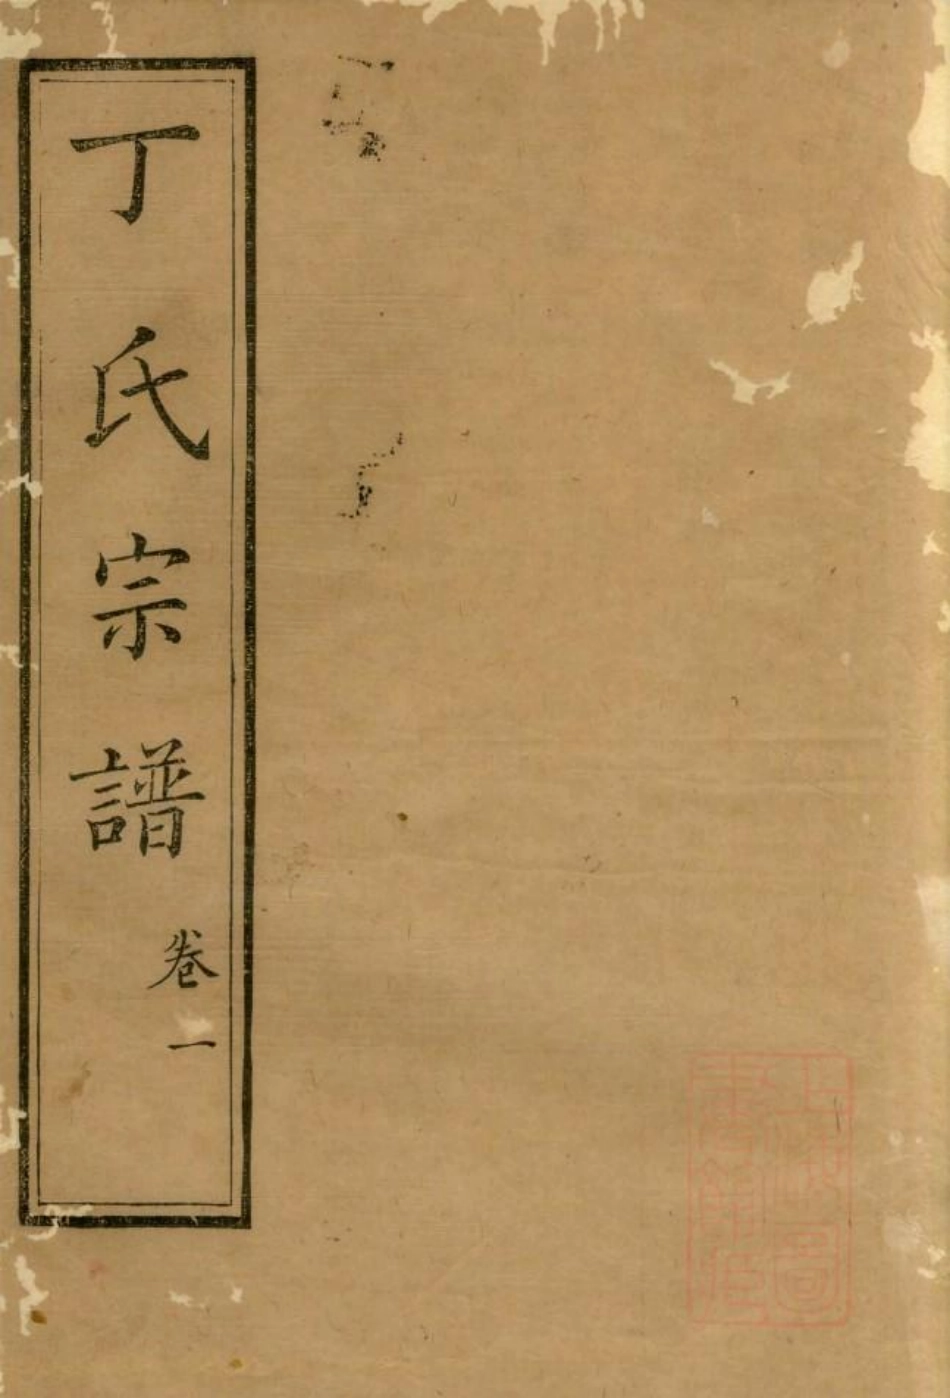 丁氏宗譜
卷一